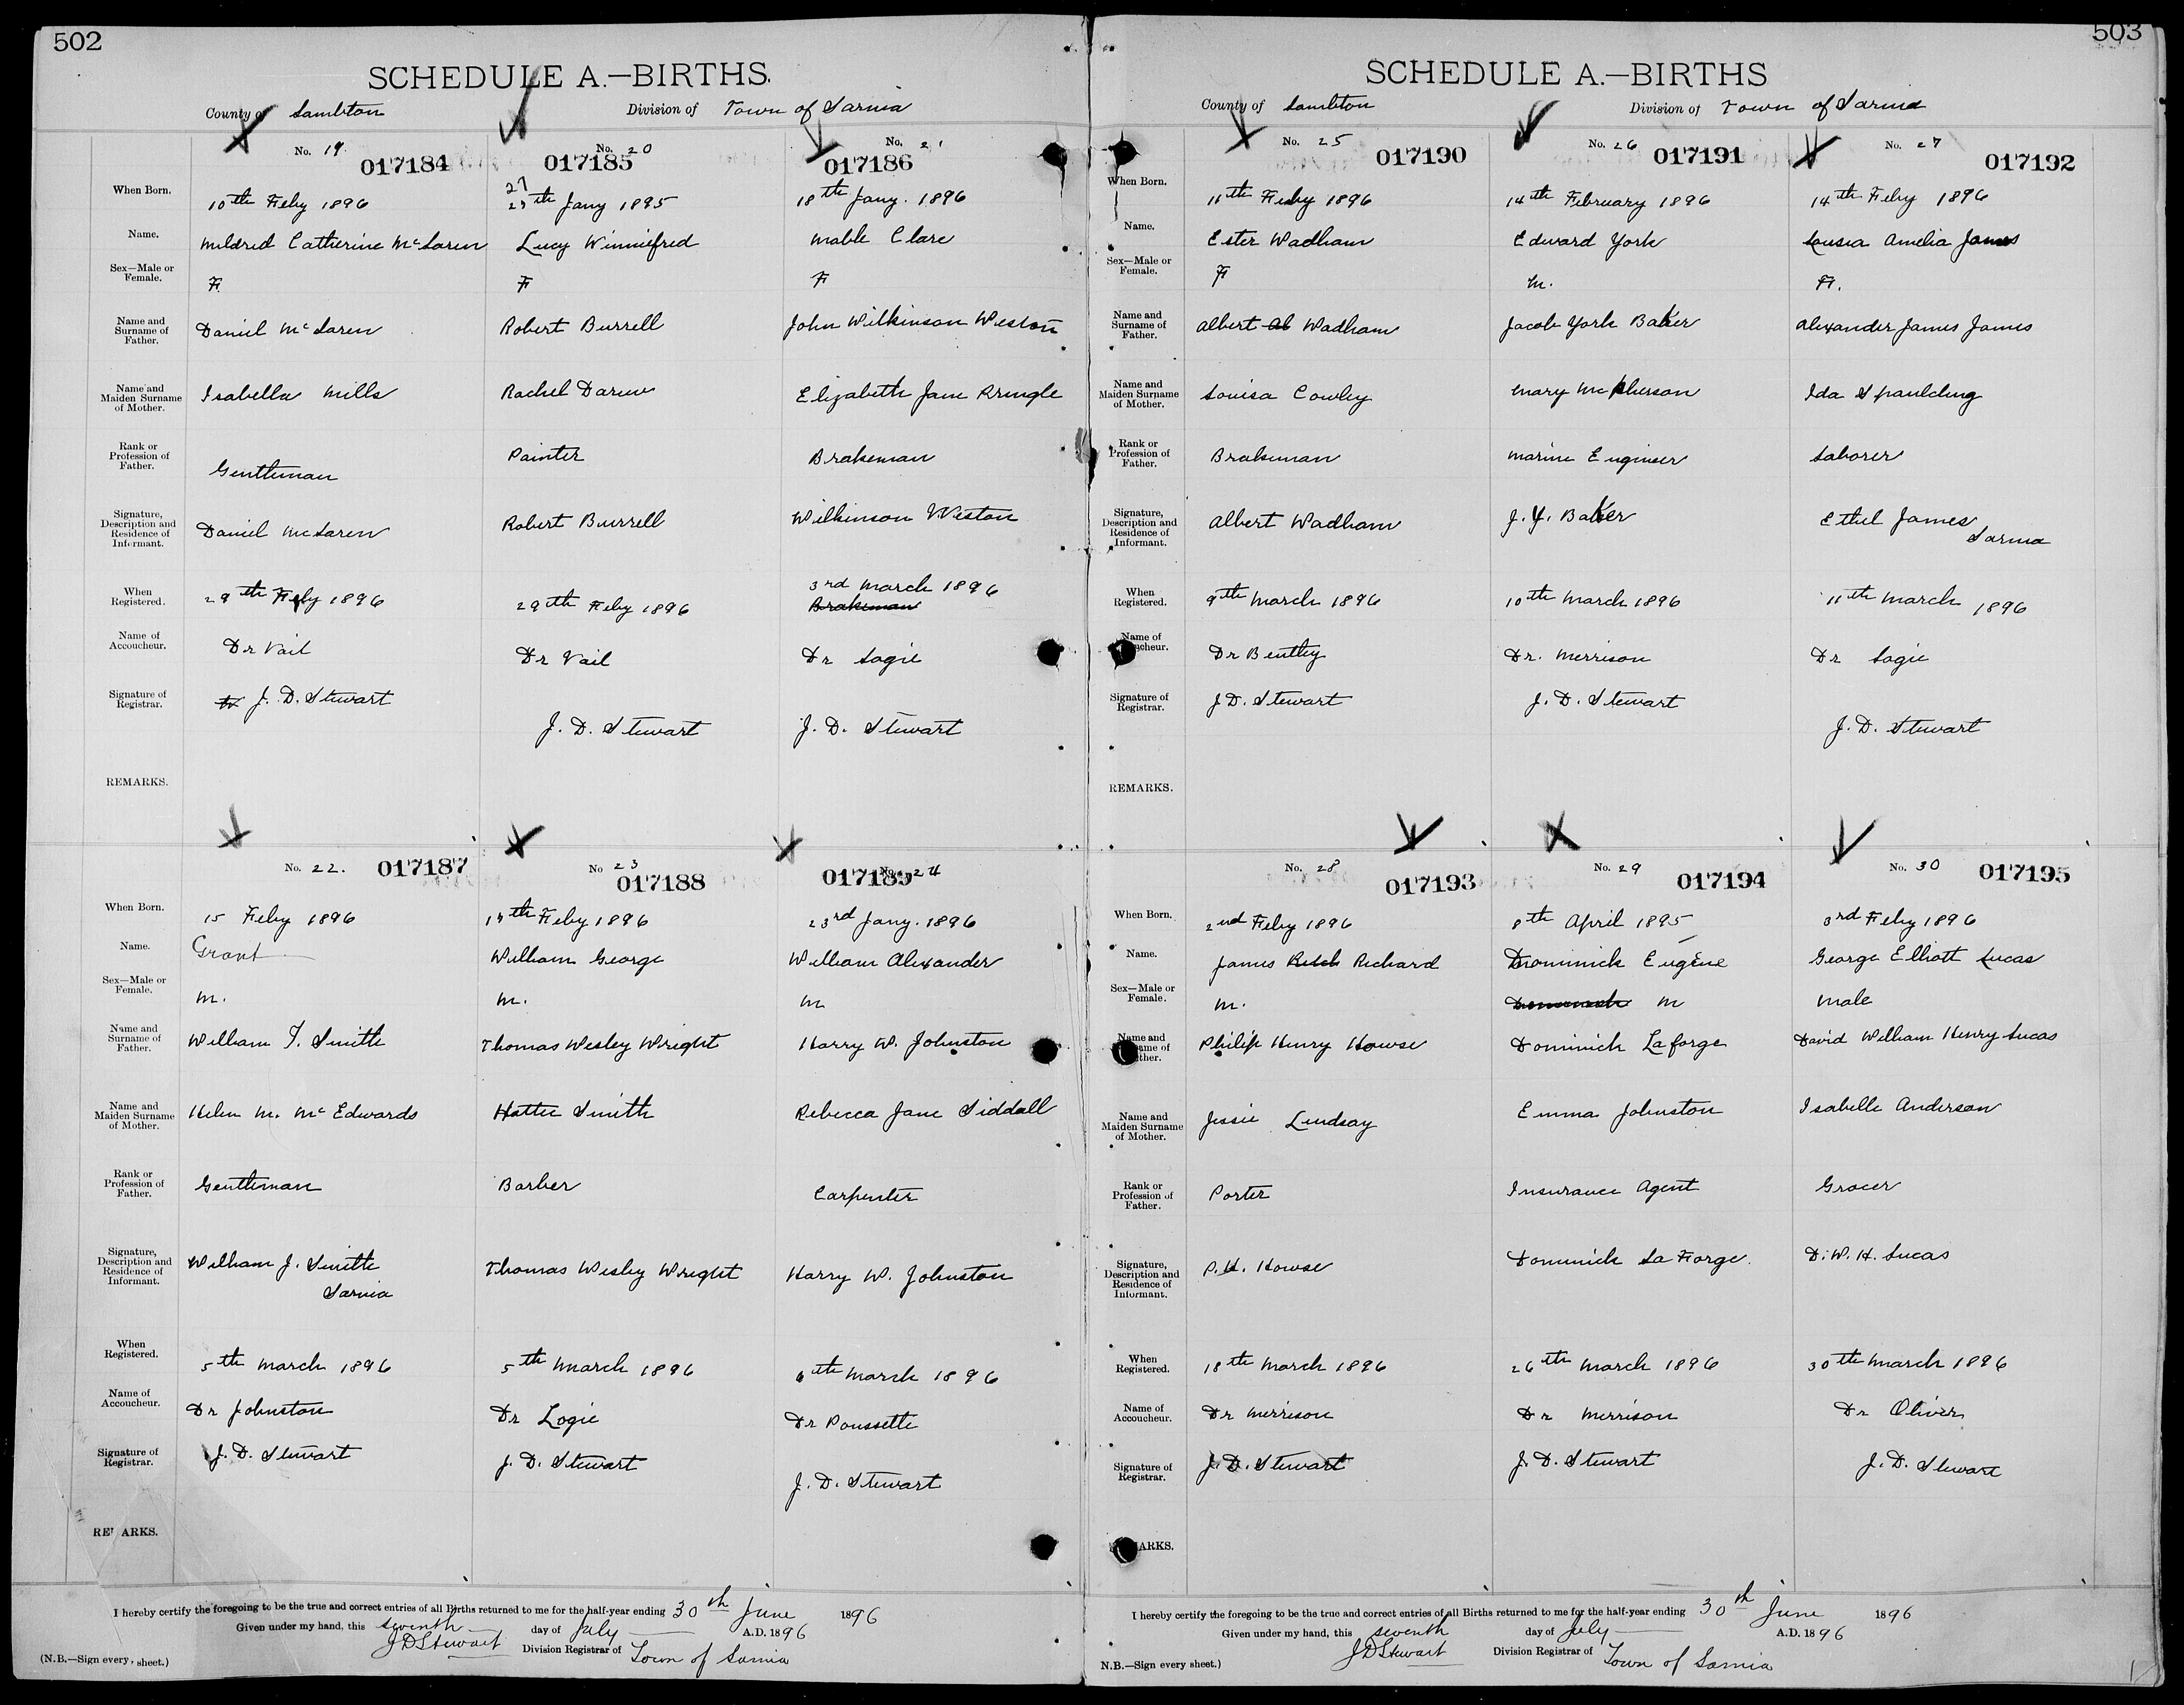 502
SCHEDULE A.—BIRTHS.
County of Lambton Division of Town of Sarnia
No. 19 017184
When Born. 10th Feby 1896
Name. Mildred Catherine McLaren
Sex—Male or Female. F.
Name and Surname of Father. Daniel McLaren
Name and Maiden Surname of Mother. Isabella Mills
Rank or Profession of Father. Gentleman
Signature, Description and Residence of Informant. Daniel McLaren
When Registered. 29th Feby 1896
Name of Accoucheur. Dr Vail
Signature of Registrar. J. D. Stewart
REMARKS.
No. 20 017185
27
th Jany 1895
Lucy Winniefred
F
Robert Burrell
Rachel
Painter
Robert Burrell
29th Feby 1896
Dr Vail
J. D. Stewart
No. 21 017186
18th Jany. 1896
Mable Clare
F
John Wilkinson Weston
Elizabeth Jane Pringle
Brakeman
Wilkinson Weston
3rd March 1896
Brakeman
Dr Logie
J. D. Stewart
No. 22. 017187
When Born. 15 Feby 1896
Name. Grant
Sex—Male or Female. M.
Name and Surname of Father. William J. Smith
Name and Maiden Surname of Mother. Helen M. McEdwards
Rank or Profession of Father. Gentleman
Signature, Description and Residence of Informant. William J. Smith
Sarnia
When Registered. 5th March 1896
Name of Accoucheur. Dr Johnston
Signature of Registrar. J. D. Stewart
REMARKS.
No 23 017188
Feby 1896
William George
M.
Thomas Wesley Wright
Hattie Smith
Barber
Thomas Wesley Wright
5th March 1896
Dr Logie
J. D. Stewart
No. 24 017189
23rd Jany. 1896
William Alexander
M
Harry W. Johnston
Rebecca Jane Siddall
Carpenter
Harry W. Johnston
6th March 1896
Dr Poussette
J. D. Stewart
I hereby certify the foregoing to be the true and correct entries of all Births returned to me for the half-year ending 30th June 1896
Given under my hand, this seventh day of July A.D. 1896
J D Stewart Division Registrar of Town of Sarnia
(N.B.—Sign every sheet.)
503
SCHEDULE A.—BIRTHS
County of Lambton Division of Town of Sarnia
No. 25 017190
When Born. 11th Feby 1896
Name. Ester Wadham
Sex—Male or Female. F
Name and Surname of Father. Albert Wadham
Name and Maiden Surname of Mother. Louisa Cowley
Rank or Profession of Father. Brakeman
Signature, Description and Residence of Informant. Albert Wadham
When Registered. 9th March 1896
Name of Accoucheur. Dr Bentley
Signature of Registrar. J D. Stewart
REMARKS.
No. 26 017191
14th February 1896
Edward York
M.
Jacob York Baker
Mary McPherson
Marine Engineer
J. Y. Baker
10th March 1896
Dr. Merrison
J. D. Stewart
No. 27 017192
14th Feby 1896
Lousia Amelia James
F.
Alexander James James
Ida Spaulding
Laborer
Ethel James
Sarnia
11th March 1896
Dr Logie
J. D. Stewart
No. 28 017193
When Born. 2nd Feby 1896
Name. James Richard
Sex—Male or Female. M.
Name and Surname of Father. Philip Henry Howse
Name and Maiden Surname of Mother. Jessie Lindsay
Rank or Profession of Father. Porter
Signature, Description and Residence of Informant. P. H. Howse
When Registered. 18th March 1896
Name of Accoucheur. Dr Merrison
Signature of Registrar. J. D. Stewart
REMARKS.
No. 29 017194
8th April 1895
Dominick Eugene
M
Dominick Laforge
Emma Johnston
Insurance Agent
Dominick LaForge.
26th March 1896
Dr Merrison
J. D. Stewart
No. 30 017195
3rd Feby 1896
George Elliott Lucas
Male
David William Henry Lucas
Isabelle Anderson
Grocer
D. W. H. Lucas
30th March 1896
Dr Oliver
J. D. Stewart
I hereby certify the foregoing to be the true and correct entries of all Births returned to me for the half-year ending 30th June 1896
Given under my hand, this seventh day of July A.D. 1896
J D Stewart Division Registrar of Town of Sarnia
N.B.—Sign every sheet.)